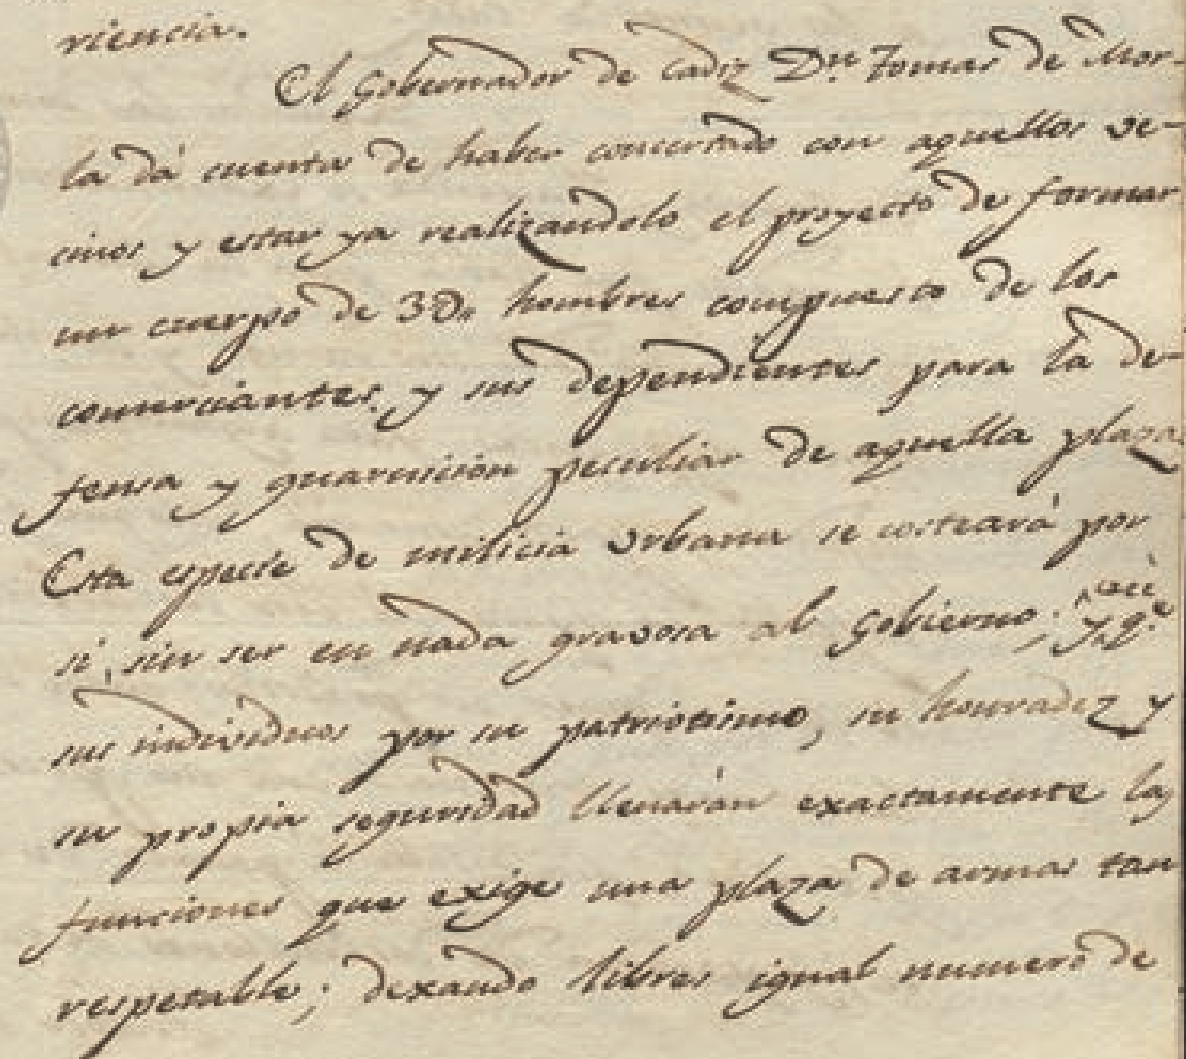 riencia.
El Gobernador de Cadiz Dn. Tomas de Mor-
la dá cuenta de haber concertado con aquellos ve-
cinos y estar ya realizandolo el proyecto de formar
un cuerpo de 3D. hombres compuesto de los
comerciantes, y sus dependientes para la de-
fensa y guarnicion peculiar de aquella plaza
Esta especie de milicia urbana se costeará por
si, sin ser en nada gravosa al Gobierno; y qe.
sus individuos por su patriotismo, su honradez y
su propia seguridad llenarán exactamente las
funciones que exige una plaza de armas tan
respetable; dexando libres igual numero de